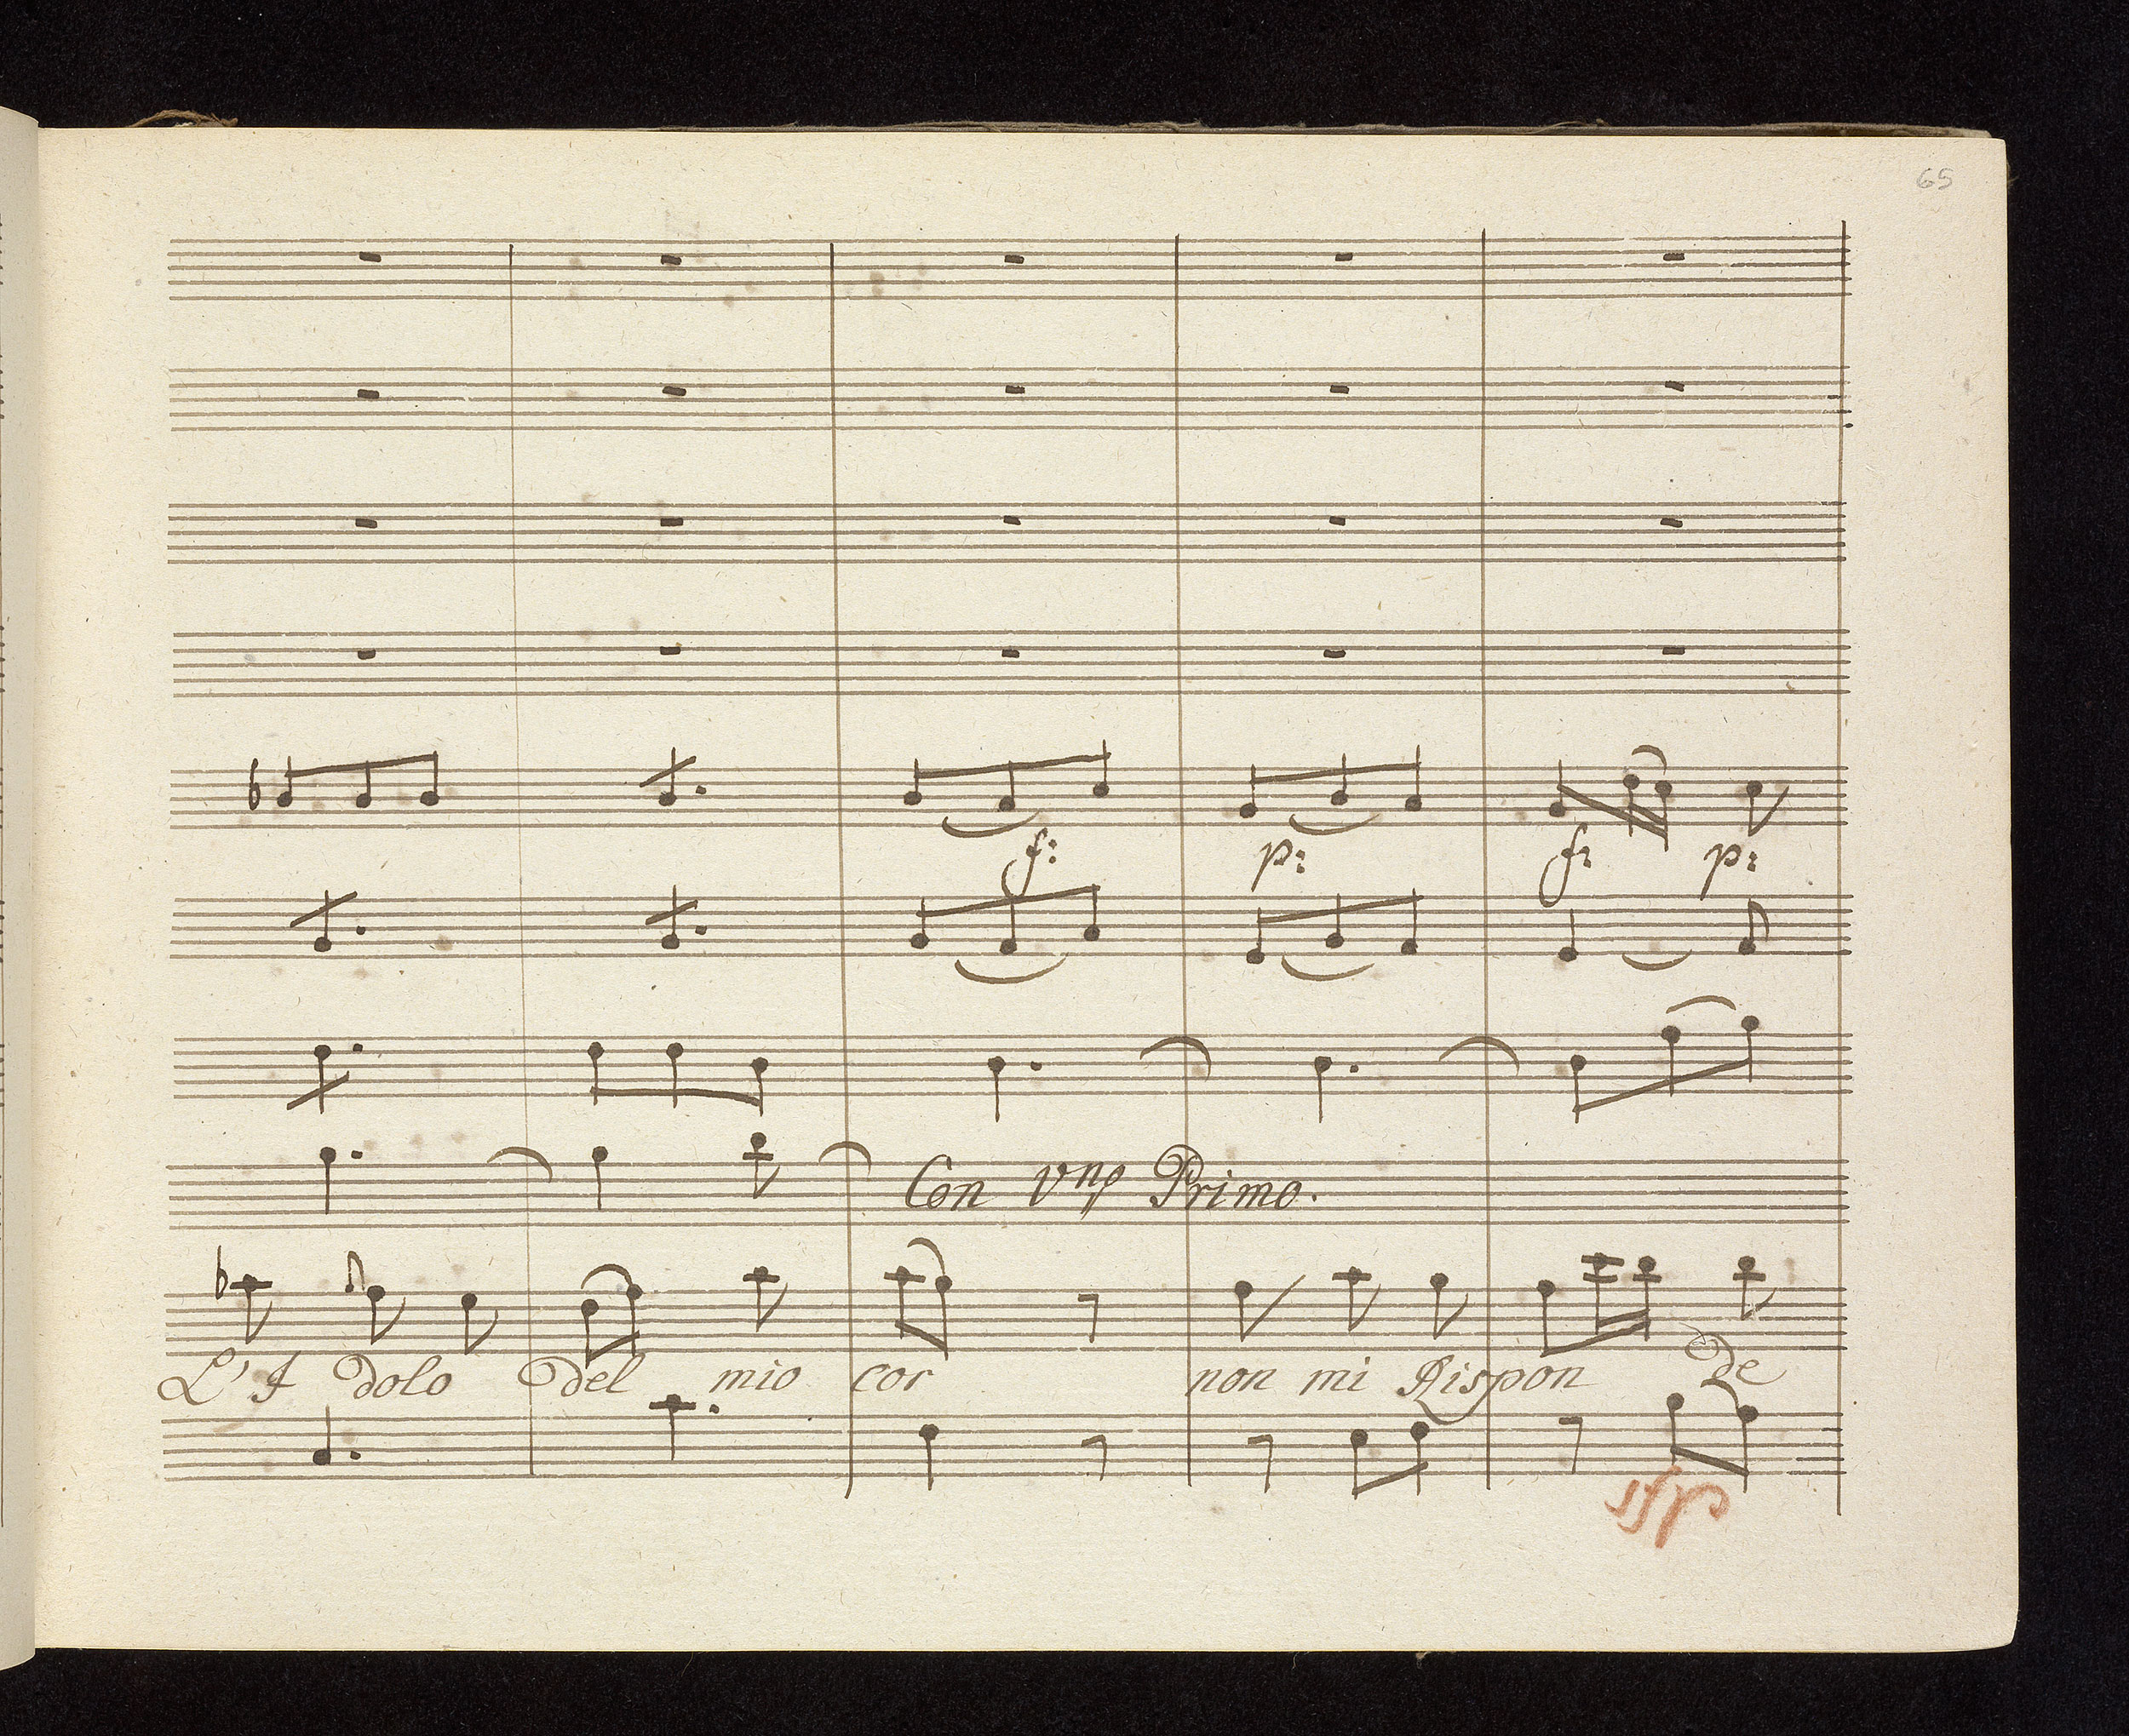 65
f: p: f: p:
Con Vno Primo.
L'I dolo Del mio cor non mi Rispon de
sfp